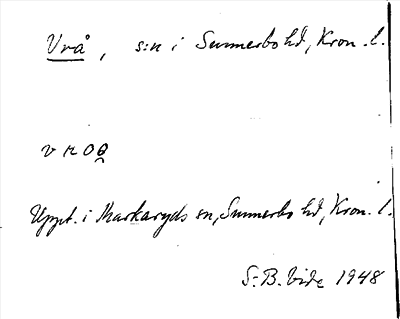 Vrå, s:n i Sunnerbo hd, Kron. l.
v r o o̱
Uppt. i Markaryds sn, Sunnerbo hd, Kron. l.
S.-B. Vide 1948